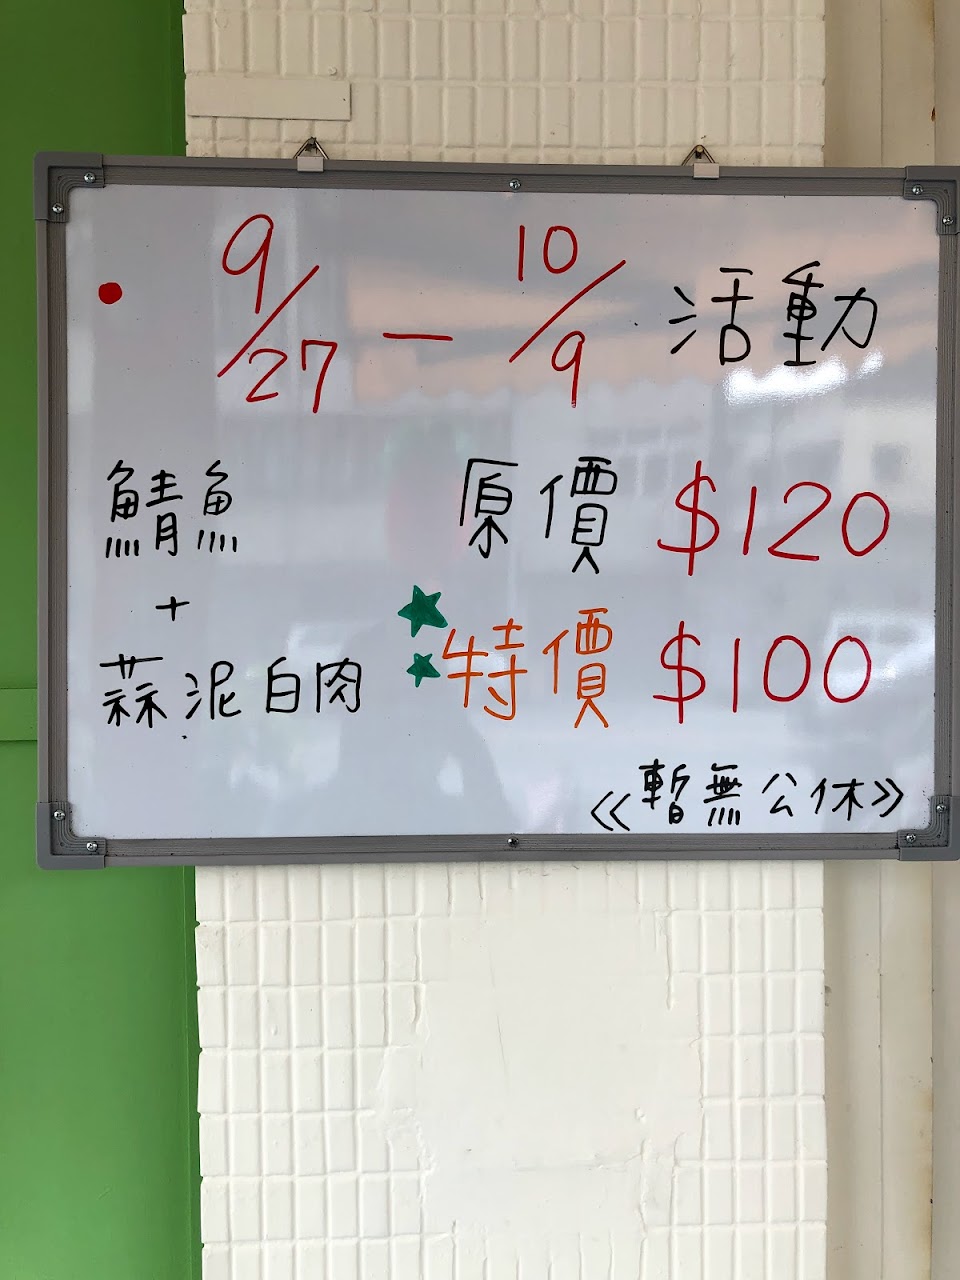 • 9/27 — 10/9 活動
鯖魚 原價 $120
+
蒜泥白肉 ★★特價 $100
《暫無公休》